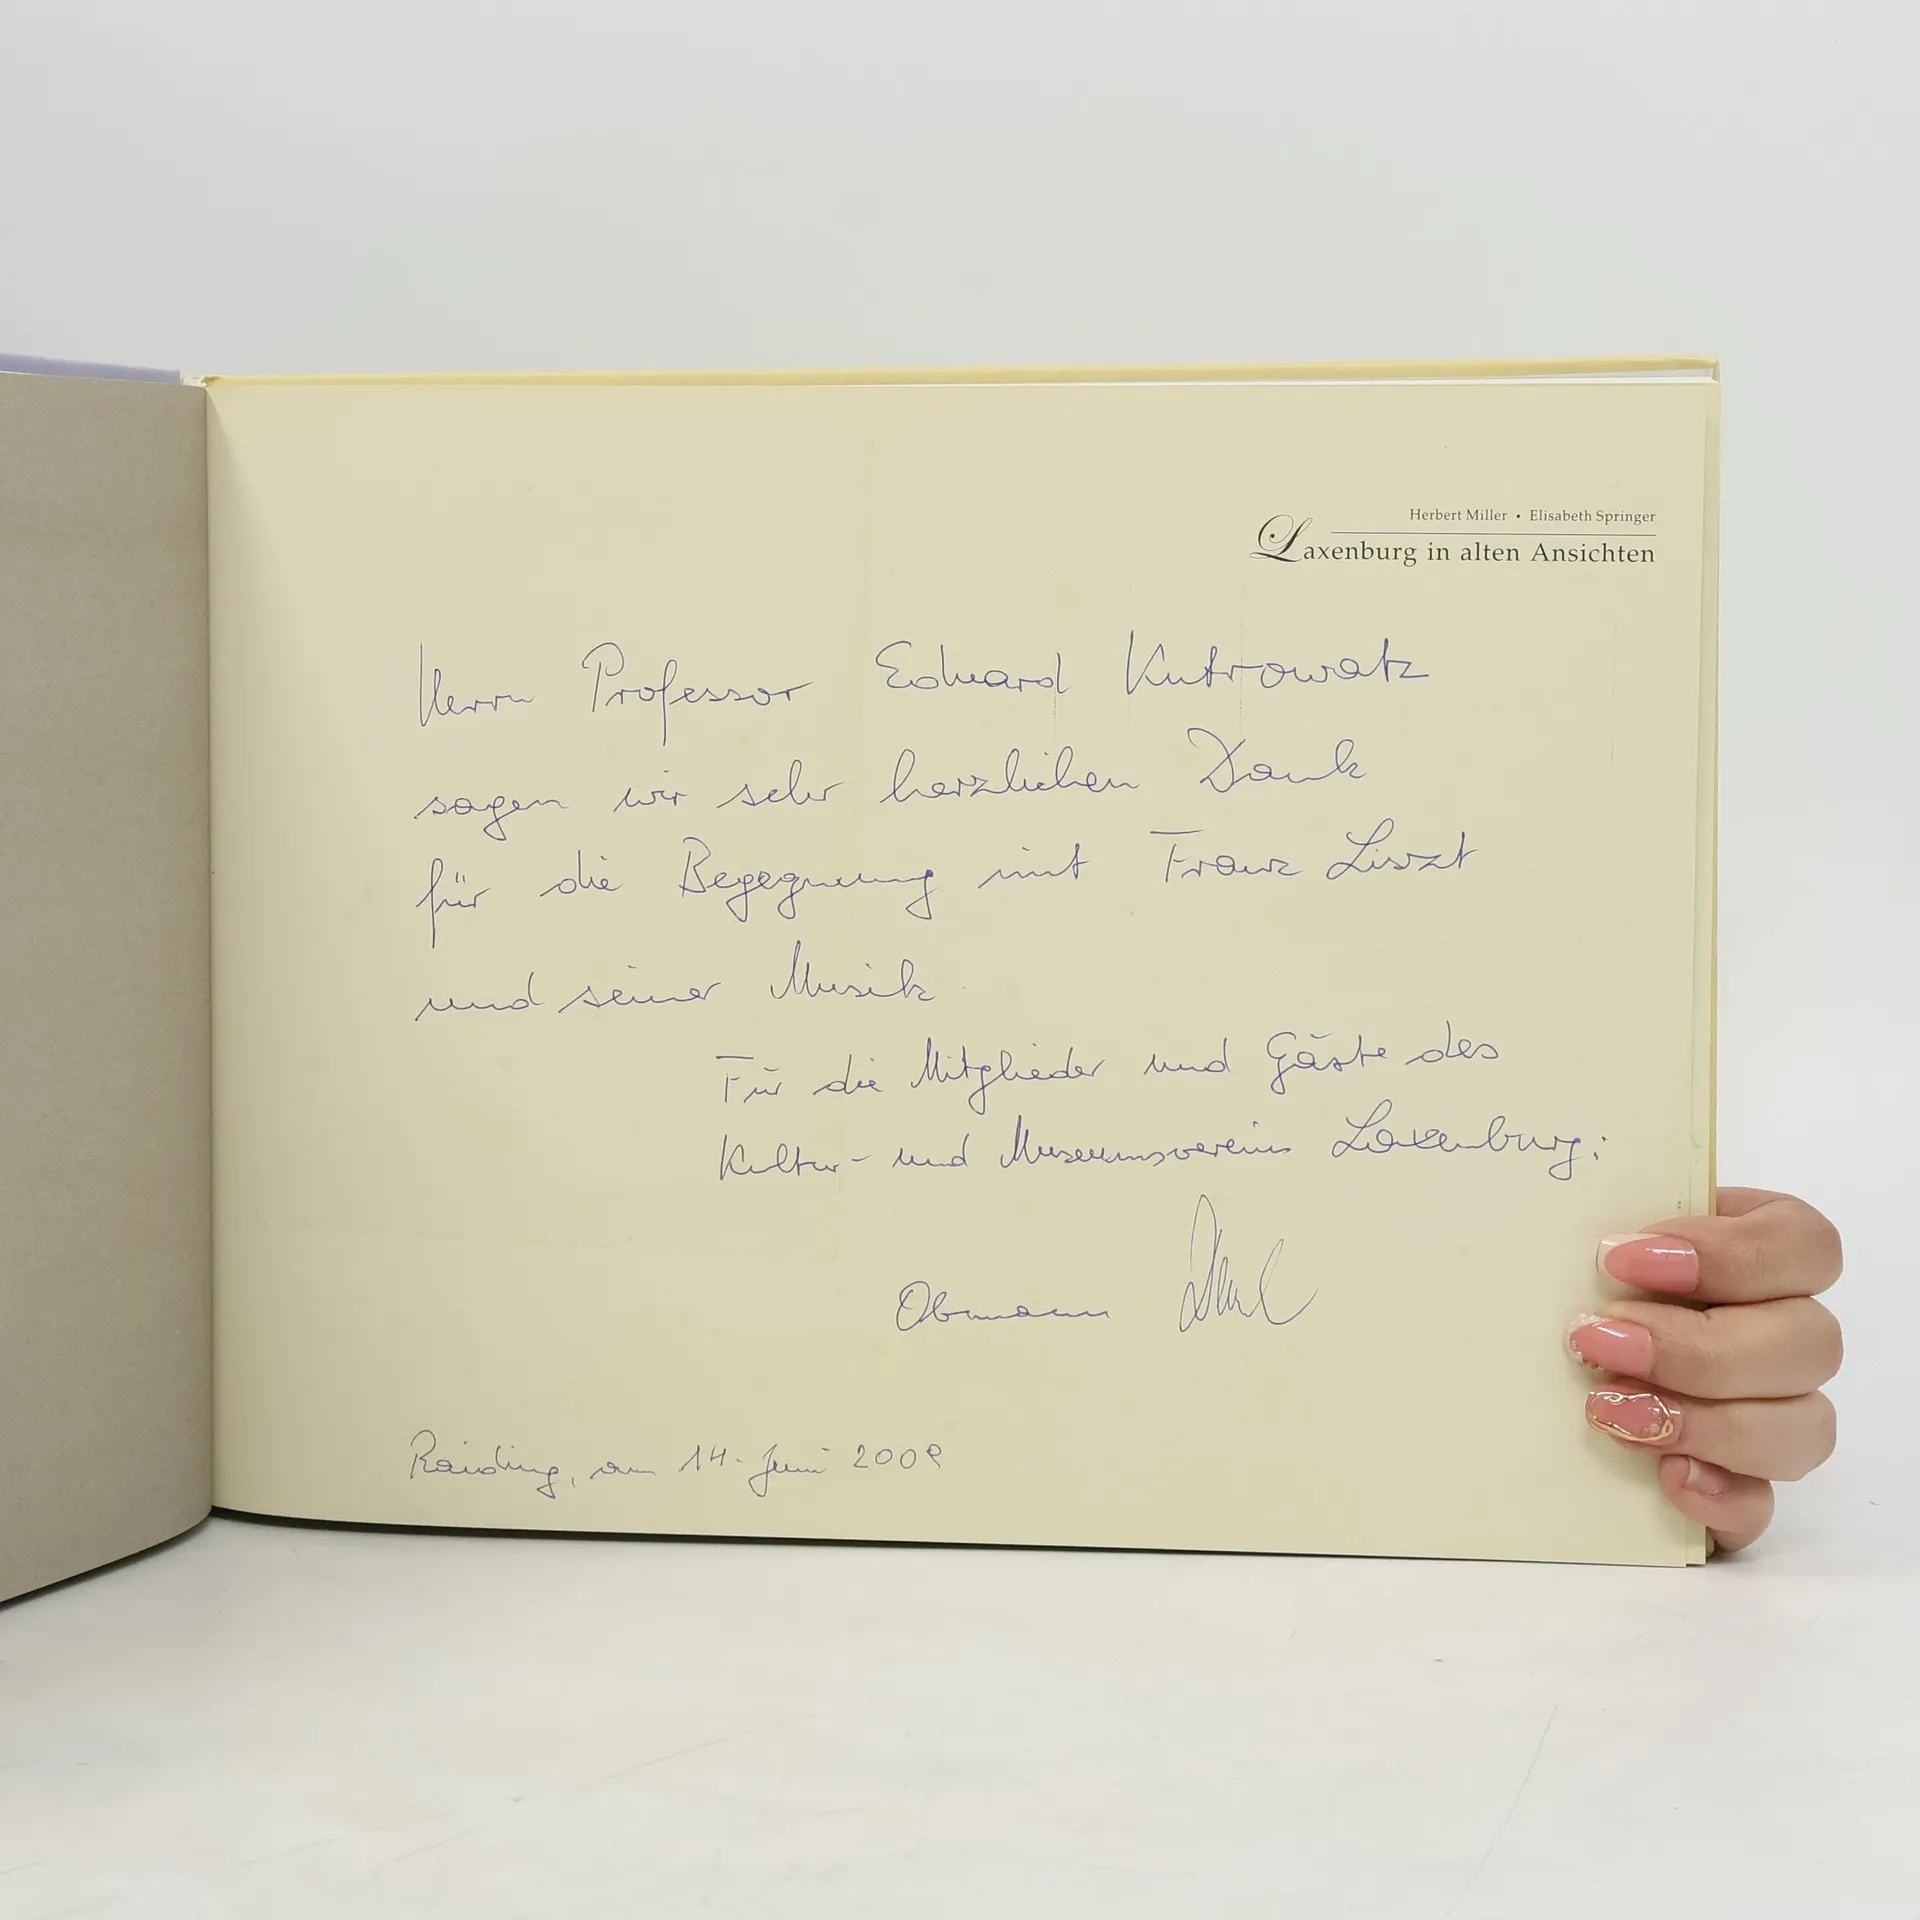 Herbert Miller • Elisabeth Springer
Laxenburg in alten Ansichten
Herrn Professor Eduard Kutrowatz
sagen wir sehr herzlichen Dank
für die Begegnung mit Franz Liszt
und seiner Musik.
Für die Mitglieder und Gäste des
Kultur- und Museumsvereins Laxenburg:
Obmann
Raiding, am 14. Juni 2009